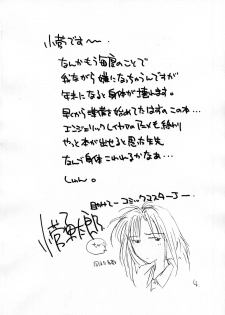 小菅です〜。
なんかもう毎度のことで
我ながら嫌になっちゃうんですが
年末になると身体が壊れます。
早くから準備を始めてたはずのこの本…
エンジェリックレイヤーのアニメも終わり
やっと本が出せると思った矢先
なんで身体こわれるかなぁ…
しゅん。
助けてーコミックマスターJー
4